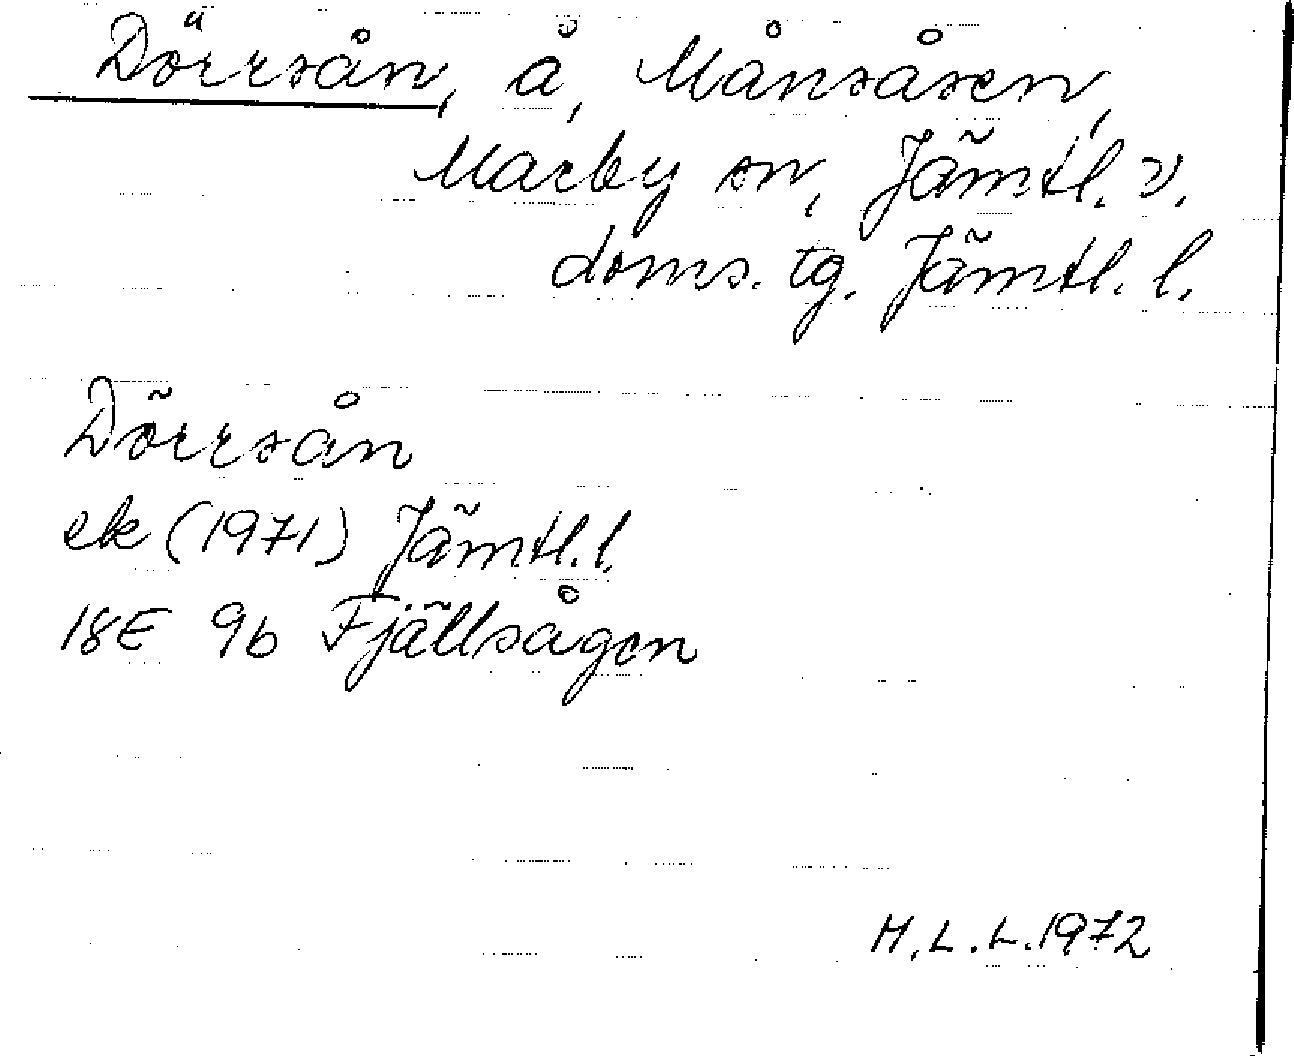 Dörrsån, å, Månsåsen,
Marby sn, Jämtl. v.
doms. tg. Jämtl. l.
Dörrsån
ek (1971) Jämtl. l.
18E 9b Fjällsågen
H.L.L. 1972